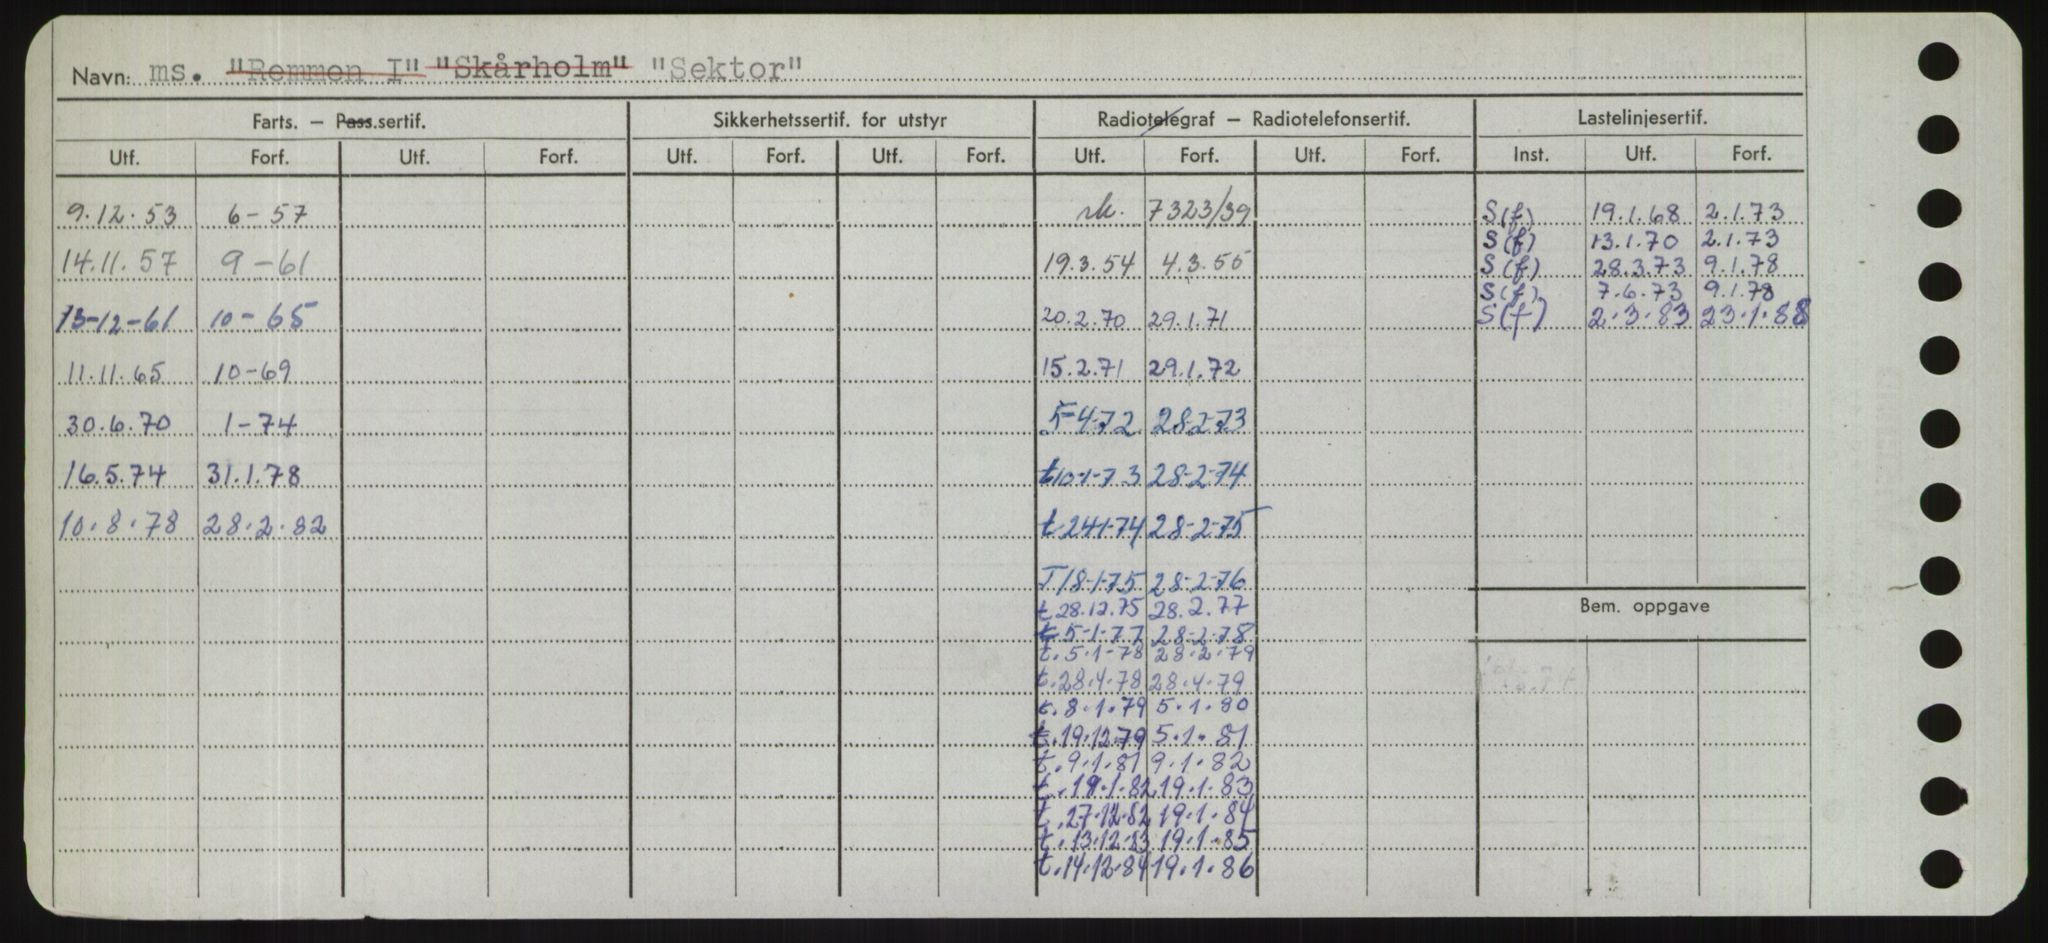 Navn: ms. "Remmen I" "Skårholm" "Sektor"
Farts. — Pass.sertif. Sikkerhetssertif. for utstyr Radiotelegraf — Radiotelefonsertif. Lastelinjesertif.
Utf. Forf. Utf. Forf. Utf. Forf. Utf. Forf. Utf. Forf. Utf. Forf. Inst. Utf. Forf.
9.12.53 6-57 rk. 7323/39 S(f) 19.1.68 2.1.73
S(f) 13.1.70 2.1.73
14.11.57 9-61 19.3.54 4.3.55 S(f) 28.3.73 9.1.78
S(f) 7.6.73 9.1.78
13-12-61 10-65 20.2.70 29.1.71 S(f) 2.3.83 23.1.88
11.11.65 10-69 15.2.71 29.1.72
30.6.70 1-74 5-4-72 28-2-73
16.5.74 31.1.78 t10-1-73 28-2-74
10.8.78 28.2.82 t.24-1-74 28-2-75
T18-1-75 28-2-76
t28.12.75 28.2.77
Bem. oppgave
t5-1-77 28-2-78
t.5.1-78 28.2.79
t.28.4.78 28.4.79
t.8.1.79 5.1.80
t.19.12.79 5.1.81
t.9.1.81 9.1.82
t.19.1.82 19.1.83
t.27.12.82 19.1.84
t.13.12.83 19.1.85
t.14.12.84 19.1.86